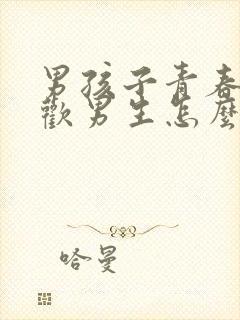 男孩子青春
歡男生怎麼
哈曼